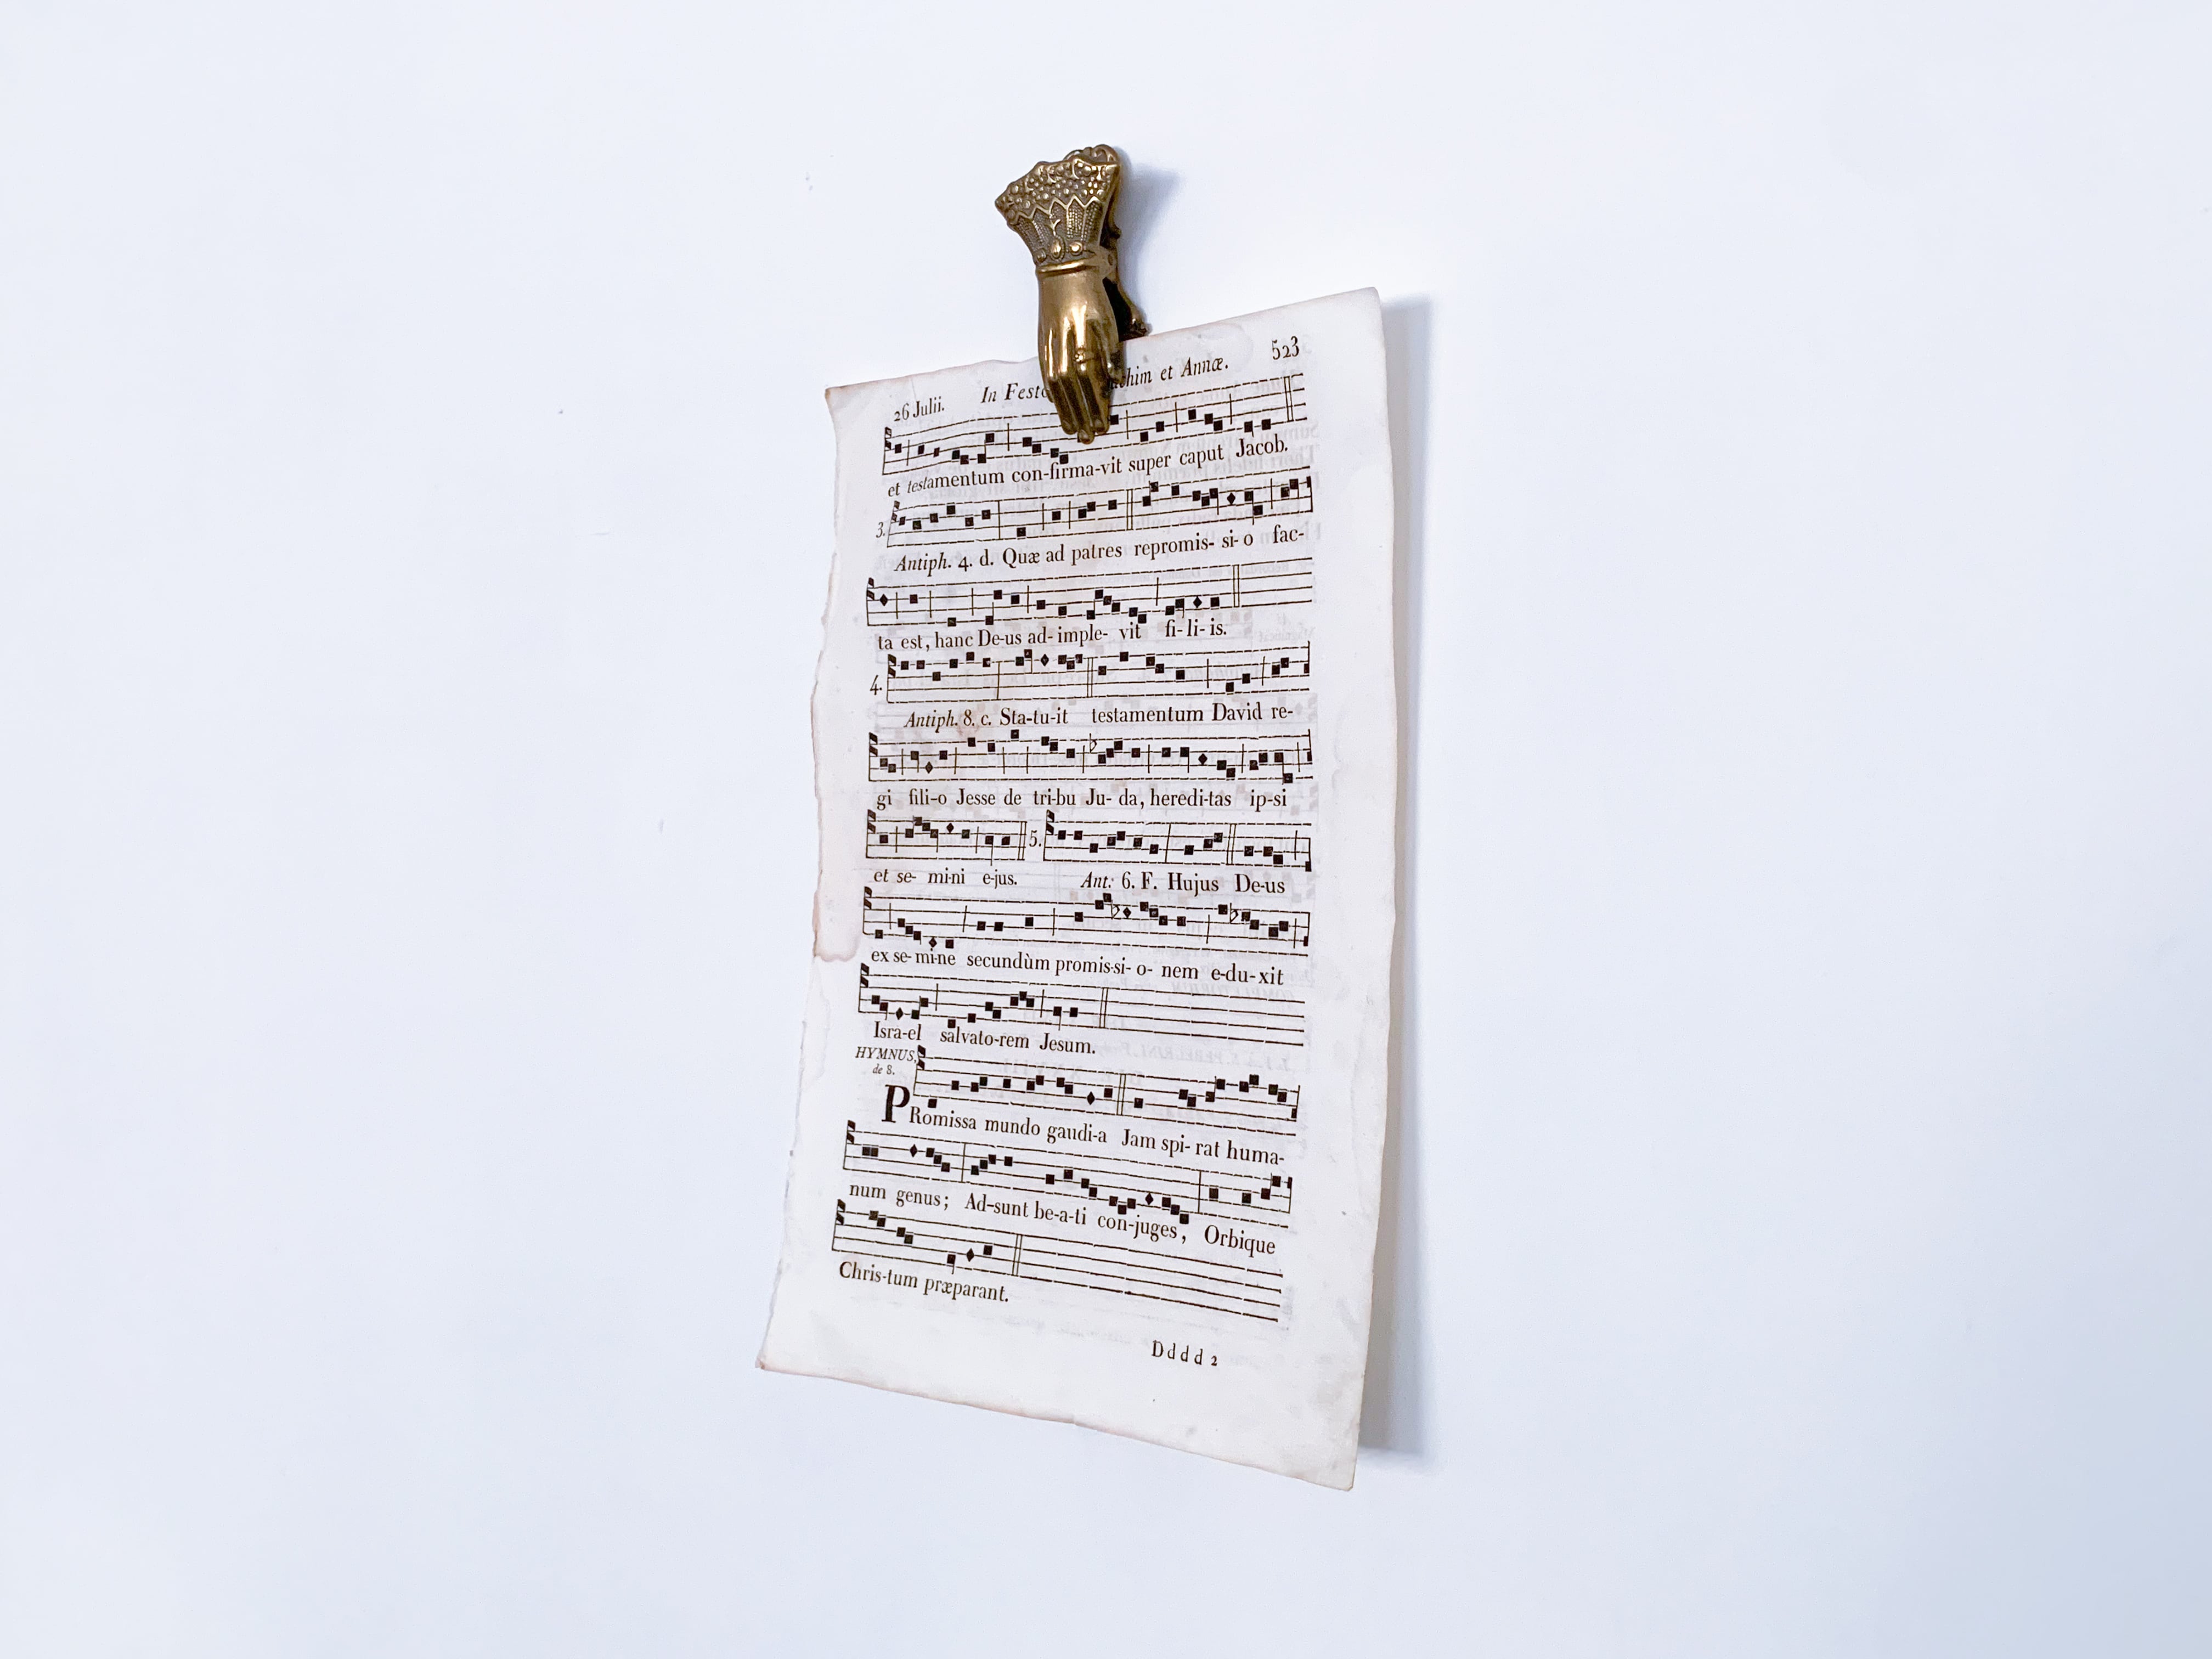 26 Julii. In Festo et Annæ. 523
et testamentum con-firma-vit super caput Jacob.
3.
Antiph. 4. d. Quæ ad patres repromis- si- o fac-
ta est, hanc De-us ad- imple- vit fi- li- is.
4.
Antiph. 8. c. Sta-tu-it testamentum David re-
gi fili-o Jesse de tri-bu Ju- da, heredi-tas ip-si
5.
et se- mi-ni e-jus. Ant: 6. F. Hujus De-us
ex se- mi-ne secundùm promis-si- o- nem e-du-xit
Isra-el salvato-rem Jesum.
HYMNUS.
de 8.
PRomissa mundo gaudi-a Jam spi- rat huma-
num genus; Ad-sunt be-a-ti con-juges, Orbique
Chris-tum præparant.
Dddd 2